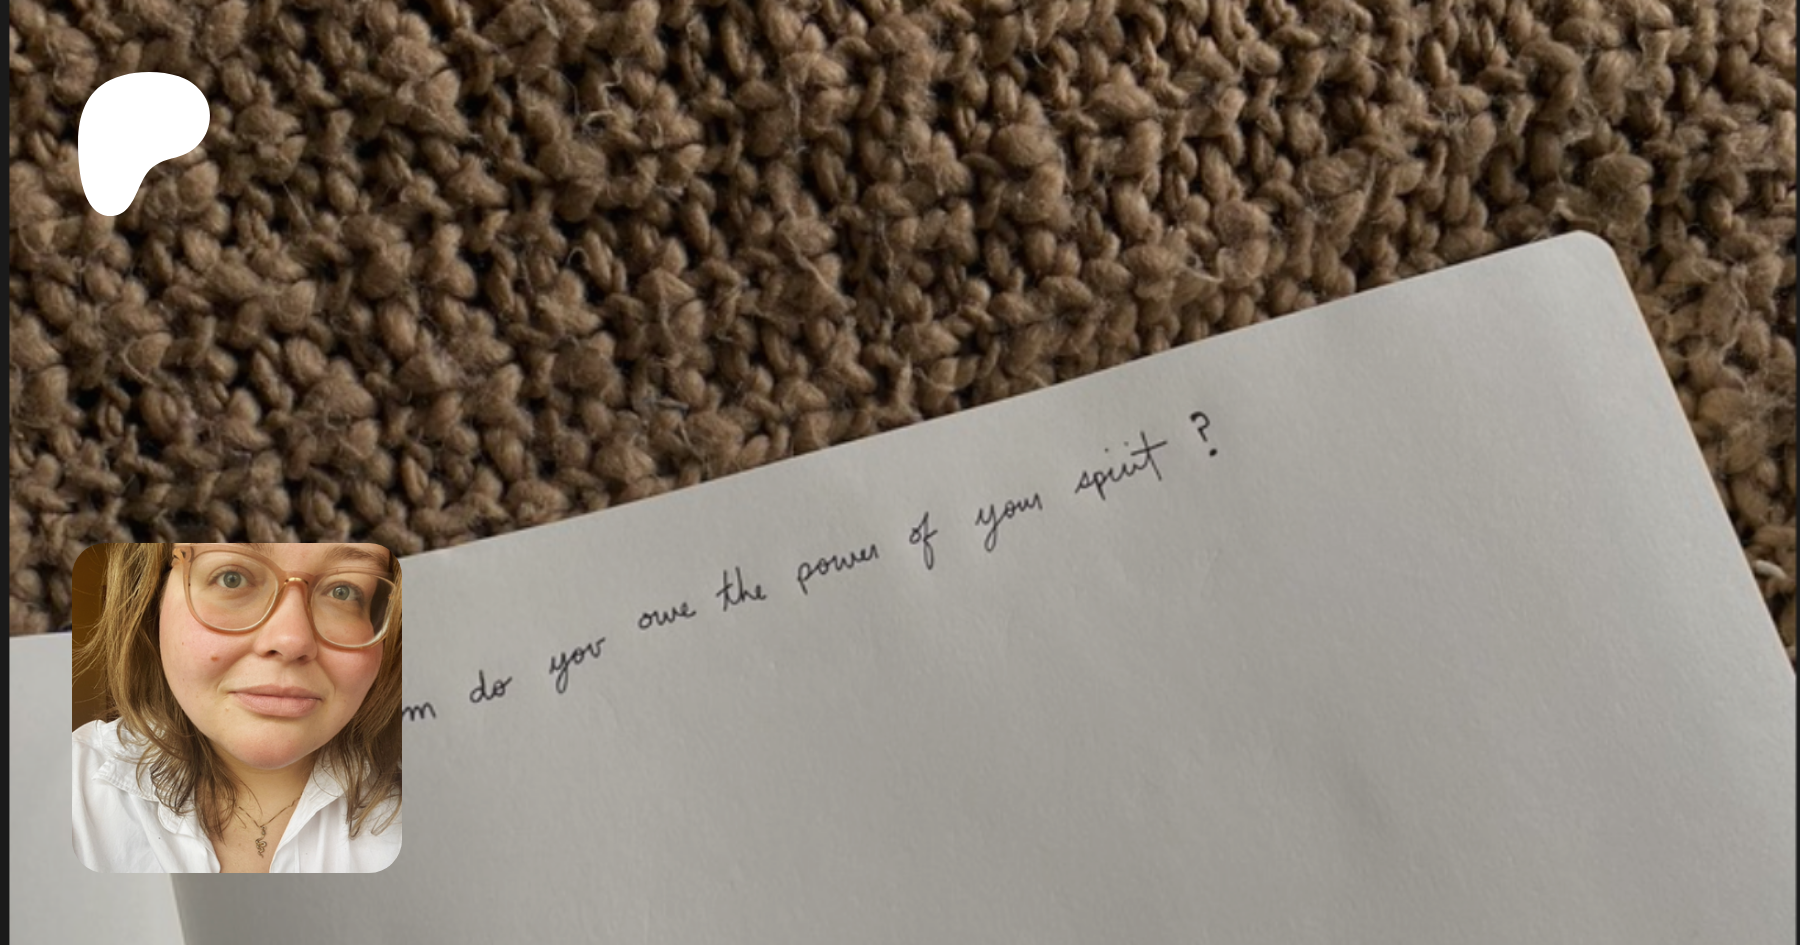 m do you owe the power of your spirit ?